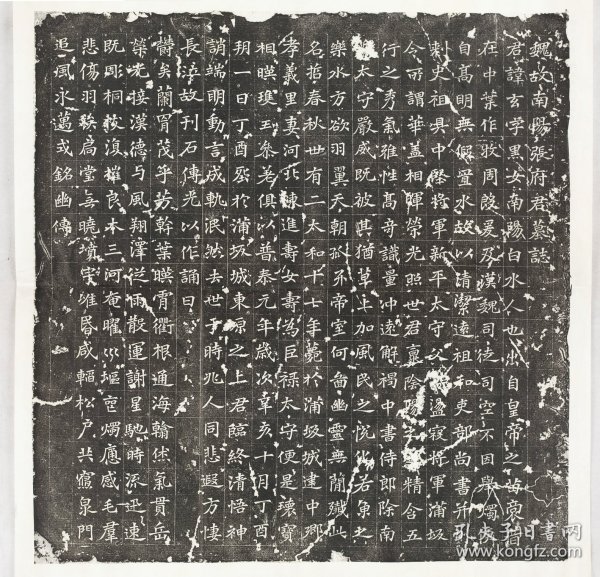 魏故南陽張府君墓誌
君諱玄字黑女南陽白水人也出自皇帝之苗裔昔
在中葉作牧周殷爰及漢魏司徒司空不因舉燭便
自高明無假置水故以清潔遠祖和吏部尚書并州
刺史祖具中堅將軍新平太守父盪寇將軍蒲坂
令所謂華蓋相暉榮光照世君稟陰陽之純精含五
行之秀氣雅性高奇識量沖遠解褐中書侍郎除南
陽太守嚴威既被其猶草上加風民之悅化若魚之
樂水方欲羽翼天朝抓牙帝室何啚幽靈無簡殲此
名哲春秋卅有二太和十七年薨於蒲坂城建中鄉
孝義里妻河北陳進壽女壽為巨祿太守便是瓌寶
相暎瓊玉參差俱以普泰元年歲次辛亥十月丁酉
朔一日丁酉葬於蒲坂城東原之上君臨終清悟神
誚端明動言成軌泯然去世于時兆人同悲遐方悽
長泣故刊石傳光以作誦曰
鬱矣蘭冑茂乎芳幹葉暎霄衢根通海翰休氣貫岳
榮光接漢德與風翔澤從雨散運謝星馳時流迅速
既彫桐枝復摧良木三河奄曜巛塸燭痛感毛羣
悲傷羽族扃堂無曉墳宇唯昏咸輀松戶共寢泉門
追風永邁式銘幽傳
孔夫子旧书网
www.kongfz.com